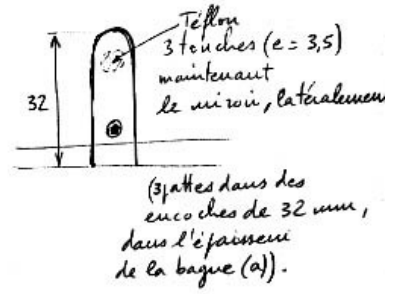 Téflon
3 touches (e = 3,5)
maintenant
le miroir, latéralemen
32
(3 pattes dans des
encoches de 32 mm,
dans l'épaisseur
de la bague (a)).